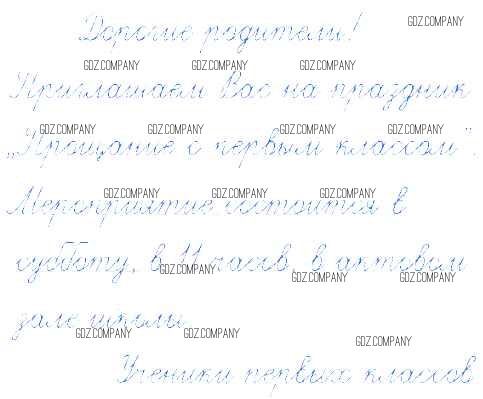 Дорогие родители!
Приглашаем Вас на праздник
„Прощание с первым классом".
Мероприятие состоится в
субботу, в 11 часов, в актовом
зале школы.
Ученики первых классов
GDZ.COMPANY
GDZ.COMPANY GDZ.COMPANY GDZ.COMPANY
GDZ.COMPANY GDZ.COMPANY GDZ.COMPANY GDZ.COMPANY
GDZ.COMPANY GDZ.COMPANY GDZ.COMPANY
GDZ.COMPANY GDZ.COMPANY GDZ.COMPANY
GDZ.COMPANY GDZ.COMPANY GDZ.COMPANY